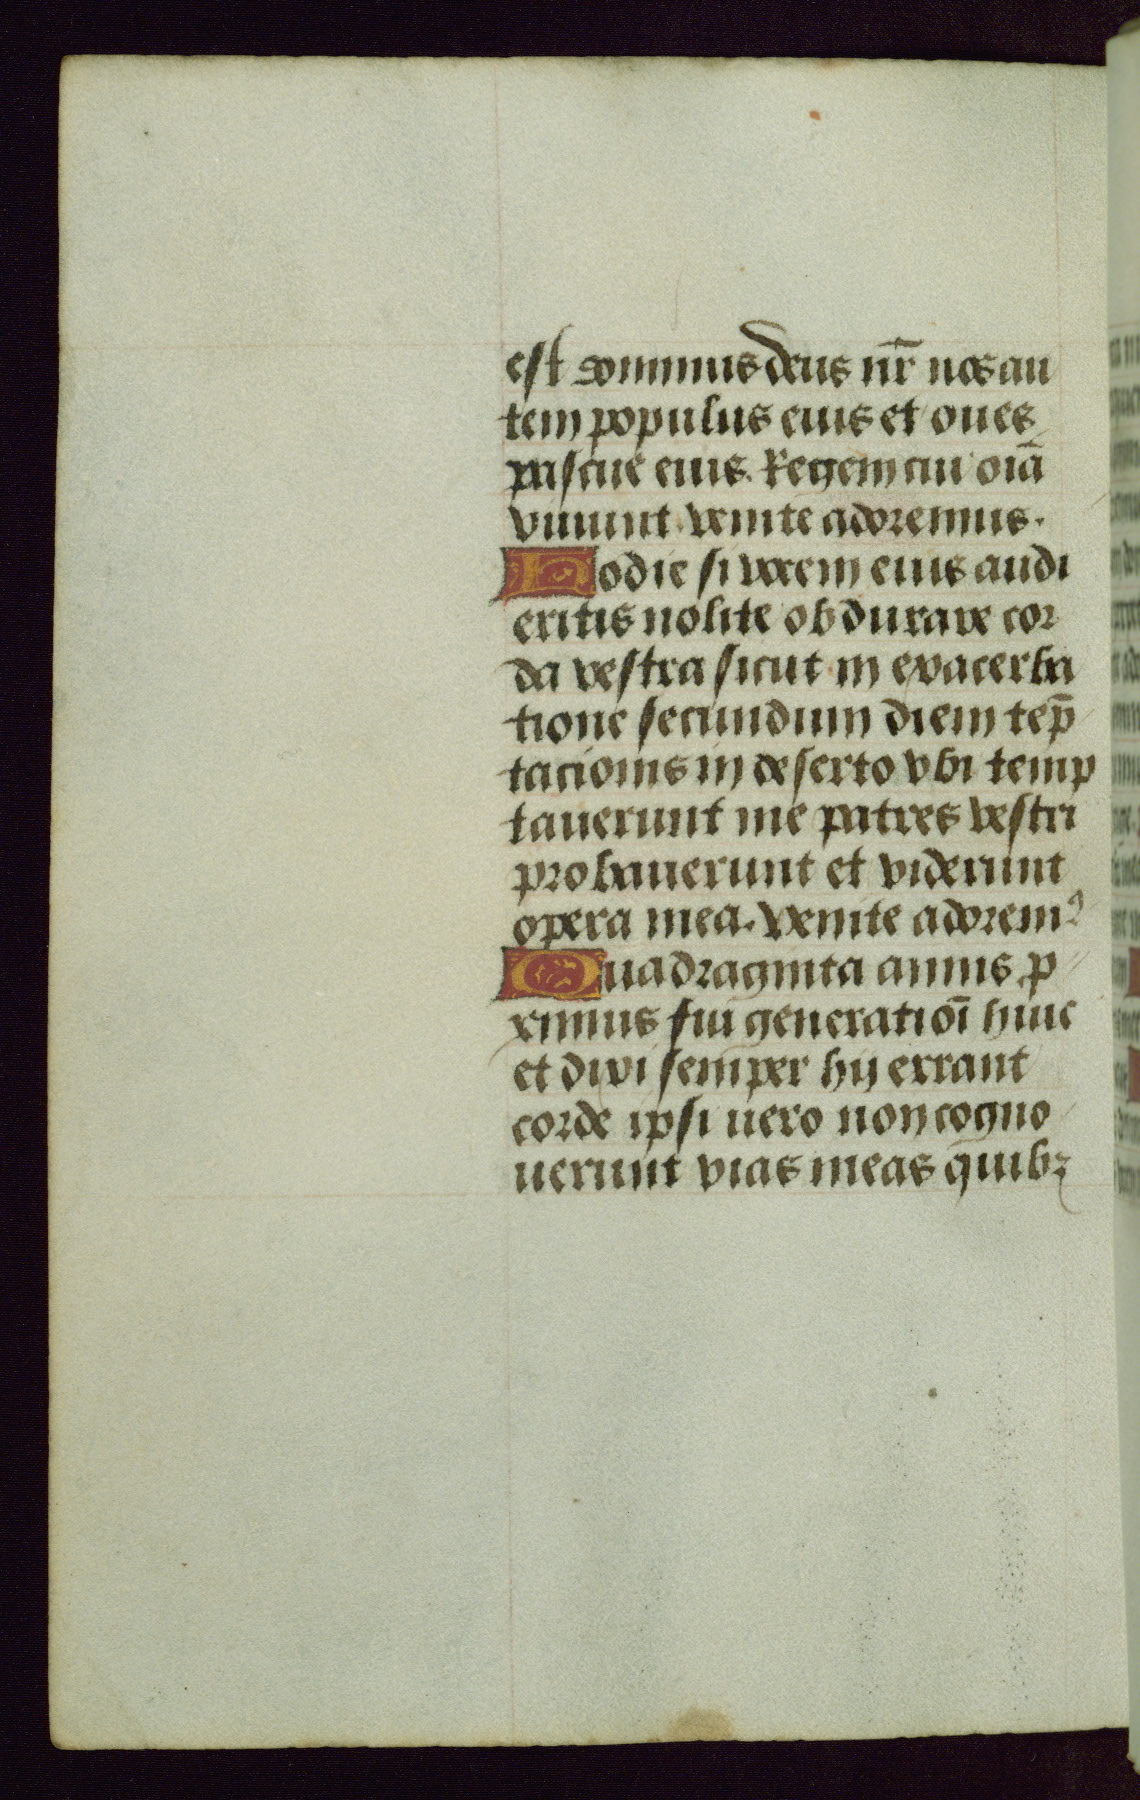 est dominus deus nr̄ nos au
tem populus eius et oues
pascue eius. Regem cui oīa
viuunt venite adoremus.
Hodie si vocem eius audi
eritis nolite obdurare cor
da vestra sicut in exacerba
tione secundum diem tep̄
tacionis in deserto vbi temp
tauerunt me patres vestri
probauerunt et viderunt
opera mea. Venite adoremꝰ
Quadraginta annis p
ximus fui generatioī huic
et dixi semper hij errant
corde ipsi uero non cogno
uerunt vias meas quibꝫ